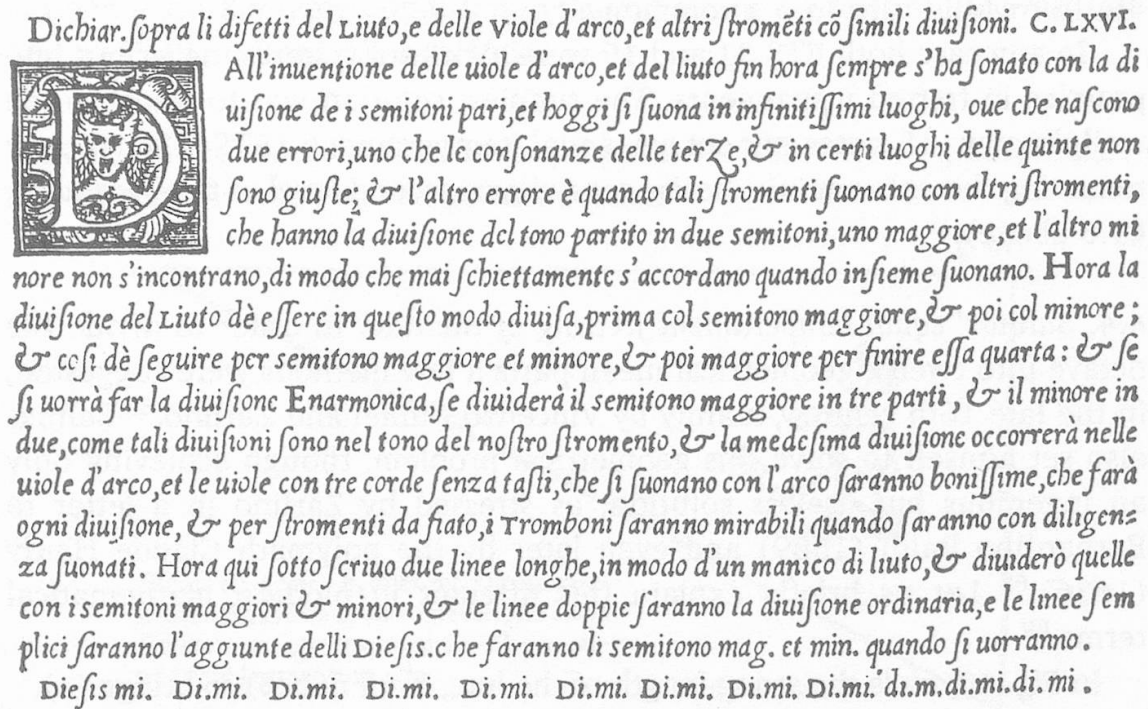 Dichiar. ſopra li difetti del Liuto, e delle Viole d'arco, et altri ſtromẽti cõ ſimili diuiſioni. C. LXVI.
DAll'inuentione delle uiole d'arco, et del liuto fin hora ſempre s'ha ſonato con la di
uiſione de i semitoni pari, et hoggi ſi ſuona in infinitiſſimi luoghi, oue che naſcono
due errori, uno che le conſonanze delle terze, & in certi luoghi delle quinte non
ſono giuſte; & l'altro errore è quando tali ſtromenti ſuonano con altri ſtromenti,
che hanno la diuiſione del tono partito in due semitoni, uno maggiore, et l'altro mi
nore non s'incontrano, di modo che mai ſchiettamente s'accordano quando inſieme ſuonano. Hora la
diuiſione del Liuto dè eſſere in queſto modo diuiſa, prima col semitono maggiore, & poi col minore;
& coſi dè ſeguire per semitono maggiore et minore, & poi maggiore per finire eſſa quarta: & ſe
ſi uorrà far la diuiſione Enarmonica, ſe diuiderà il semitono maggiore in tre parti, & il minore in
due, come tali diuiſioni ſono nel tono del noſtro ſtromento, & la medeſima diuiſione occorrerà nelle
uiole d'arco, et le uiole con tre corde ſenza taſti, che ſi ſuonano con l'arco ſaranno boniſſime, che farà
ogni diuiſione, & per ſtromenti da fiato, i Tromboni ſaranno mirabili quando ſaranno con diligen=
za ſuonati. Hora qui ſotto ſcriuo due linee longhe, in modo d'un manico di liuto, & diuiderò quelle
con i semitoni maggiori & minori, & le linee doppie ſaranno la diuiſione ordinaria, e le linee ſem
plici ſaranno l'aggiunte delli Dieſis. che faranno li semitono mag. et min. quando ſi uorranno.
Dieſis mi. Di.mi. Di.mi. Di.mi. Di.mi. Di.mi. Di.mi. Di.mi. Di.mi. di.m. di.mi. di. mi.